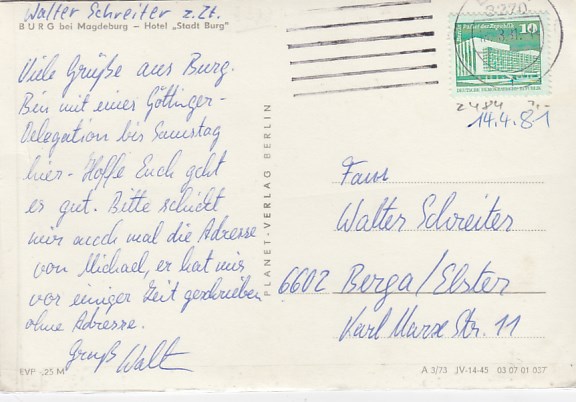 Walter Schreiter z.Zt.
BURG bei Magdeburg – Hotel „Stadt Burg"
Viele Grüße aus Burg.
Bin mit einer Göttinger-
Delegation bis Samstag
hier - Hoffe Euch geht
es gut. Bitte schickt
mir auch mal die Adresse
von Michael, er hat mir
vor einiger Zeit geschrieben
ohne Adresse.
Gruß Walt
EVP -,25 M
PLANET-VERLAG BERLIN
3270
10
DEUTSCHE DEMOKRATISCHE REPUBLIK
2484
14.4.81
Walter Schreiter
6602 Berga/Elster
Karl Marx Str. 11
A 3/73 JV-14-45 03 07 01 037